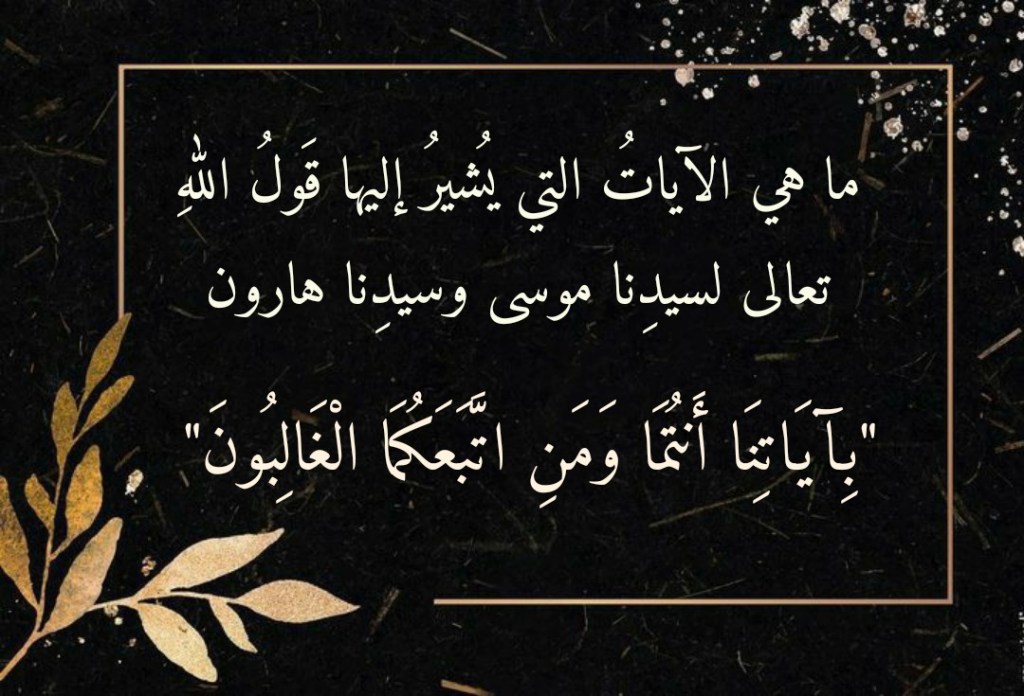 ما هي الآياتُ التي يُشيرُ إليها قَولُ اللهِ
تعالى لسيدِنا موسى وسيدِنا هارون
"بِآيَاتِنَا أَنتُمَا وَمَنِ اتَّبَعَكُمَا الْغَالِبُونَ"